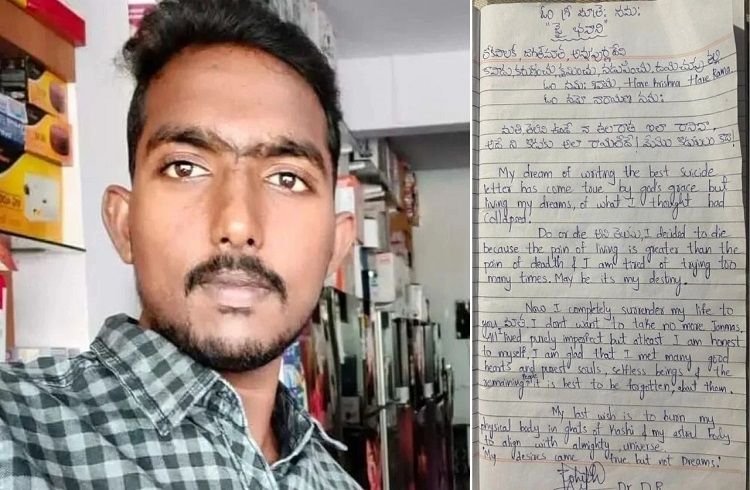 ఓం శ్రీ మాత్రే నమః
"జై భవాని"
ఓం నమః శివాయ, Hare Krishna Hare Rama
ఓం నమో నారాయణ నమః
My dream of writing the best suicide
letter has come true by gods grace but
living my dreams, of what I thought had
collapsed.
Do or die I decided to die
because the pain of living is greater than the
pain of death & I am tired of trying too
many times. May be it's my destiny.
Now I completely surrender my life to
you I dont want to take no more Janmas,
lived purely imperfect but atleast I am honest
to myself, I am glad that I met many good
hearts and purest souls, selfless beings & the
remaining people it is best to be forgotten about them.
My last wish is to burn my
physical body in ghats of Kashi & my astral body
to align with almighty universe.
"My desires came true but not Dreams."